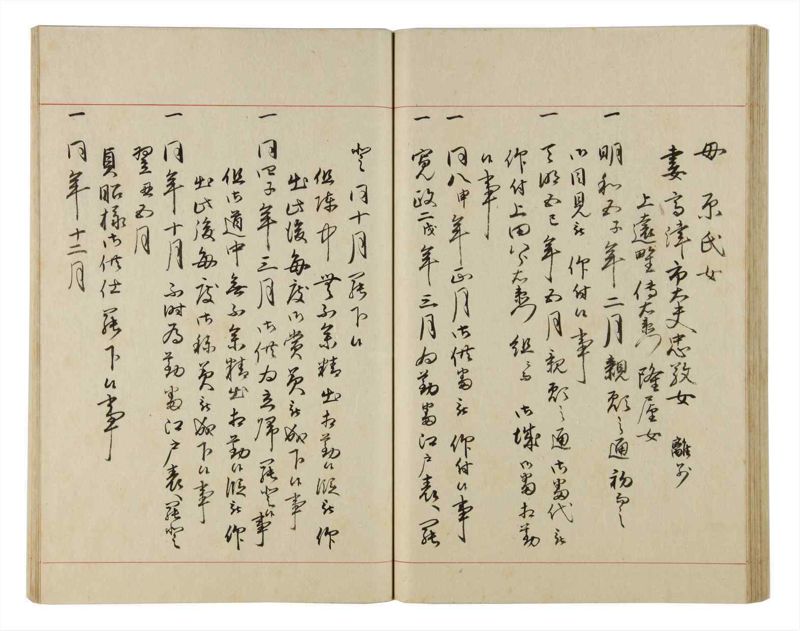 母 原氏女
妻 高津市太夫忠敬女 離別
上遠野傳太夫 隆屋女
一 明和五子年二月親願之通初而之
御目見被 仰付候事
一 天明五巳年五月親願之通御番代被
仰付上田 組 御城御番相勤
候事
一 同八申年正月御供番被 仰付候事
一 寛政二戌年三月為勤番江戸表へ罷
登同十月罷下候
但 中無不参精出相勤候段被仰
出此後毎度御賞美被成下候事
一 同四子年三月御供為立帰罷登候事
但御道中無不参精出相勤候段被仰
出此後毎度御称美被成下候事
一 同年十月不時為勤番江戸表へ罷登
翌丑五月
貞昭様御供仕罷下候事
一 同年十二月